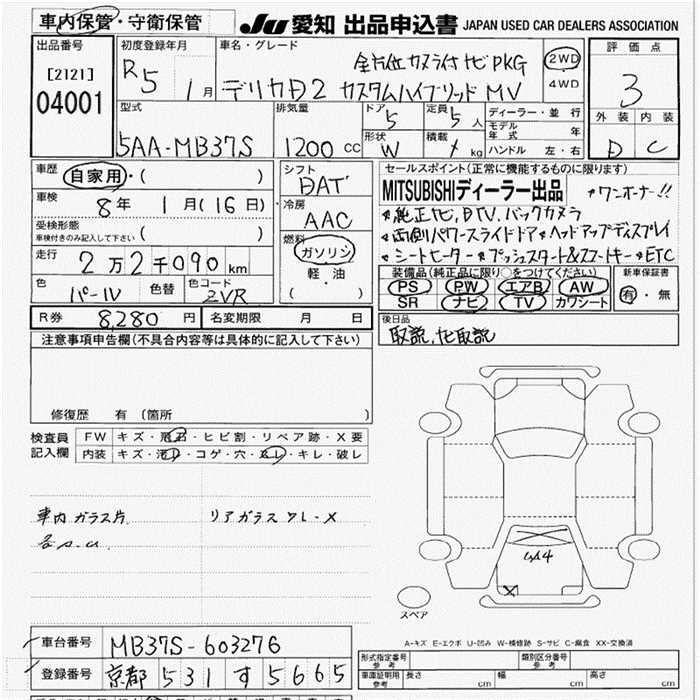 車内保管・守衛保管 JU 愛知 出品申込書 JAPAN USED CAR DEALERS ASSOCIATION
出品番号 [2121] 04001
初度登録年月 R5 1月
車名・グレード 全方位カメラ付ナビPKG
デリカD2 カスタムハイブリッド MV
2WD・4WD
評価点 3
外装 内装
D C
型式 5AA-MB37S
排気量 1200 CC
ドア 5
形状 W
定員 5人
積載 kg
ディーラー・並行
モデル年式 年
ハンドル 左・右
車歴 自家用・( )
車検 8年 1月(16日)
受検形態
車検付きのみ記入して下さい ( )
走行 2万2千090km
色 パール 色替 色コード ZVR
シフト DAT
冷房 AAC
燃料 ガソリン
軽・油
( )
セールスポイント(正常に機能するものに限ります)
MITSUBISHIディーラー出品 *ワンオーナー!!
*純正ナビ,DTV,バックカメラ
*両側パワースライドドア *ヘッドアップディスプレイ
*シートヒーター *プッシュスタート&スマートキー *ETC
装備品(純正品に限り○をつけてください)
PS PW エアB AW
SR ナビ TV カワシート
新車保証書
有・無
R券 8,280円 名変期限 月 日
後日品
取説,ナビ取説
注意事項申告欄(不具合内容等は具体的に記入して下さい)
修復歴 有 (箇所 )
検査員記入欄
FW キズ・飛石・ヒビ割・リペア跡・X要
内装 キズ・汚レ・コゲ・穴・スレ・キレ・破レ
車内ガラス片 リアガラスワレ-X
スペア
A-キズ E-エクボ U-凹み W-補修跡 S-サビ C-腐食 XX-交換済
車台番号 MB37S-603276
登録番号 京都 531 す 5665
形式指定番号 参考
類別区分番号 参考
車庫証明用 参考 長さ cm 幅 cm 高さ cm